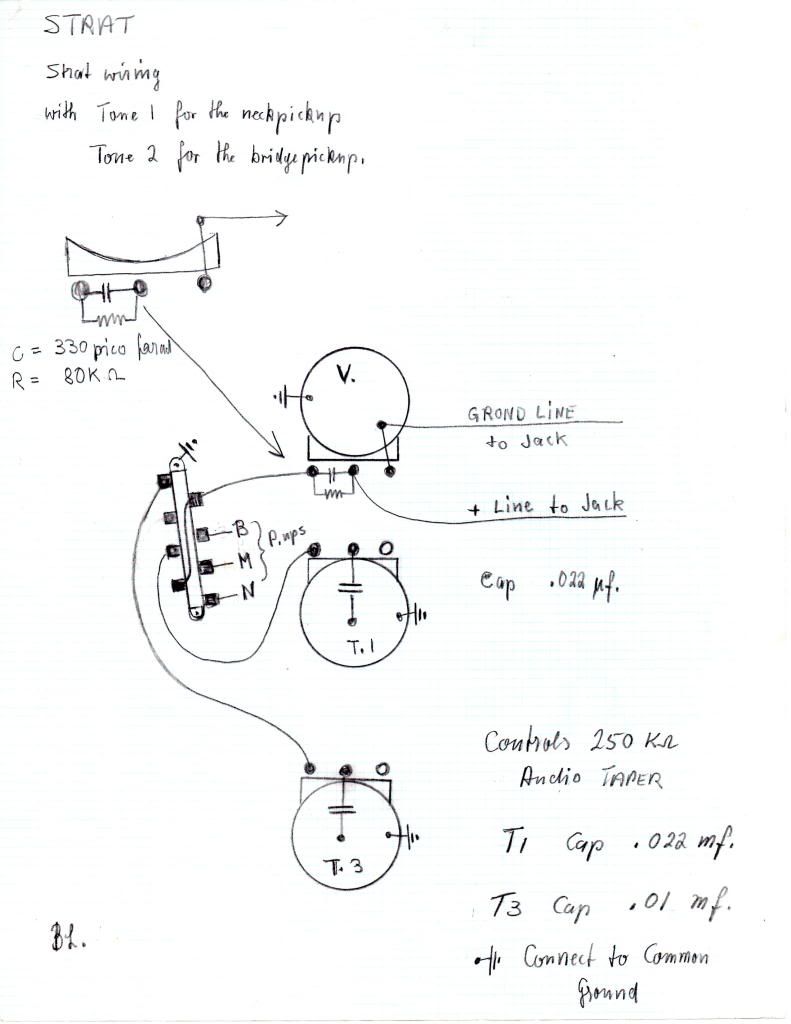 STRAT
Strat wiring
with Tone 1 for the neckpickup
Tone 2 for the bridgepickup.
C = 330 pico farad
R = 80K Ω
V.
GROND LINE
to Jack
+ Line to Jack
B
M
N
P.ups
Cap .022 µf.
T.1
Controls 250 KΩ
Audio TAPER
T1 Cap .022 mf.
T.3
T3 Cap .01 mf.
BL.
Connect to Common
Ground